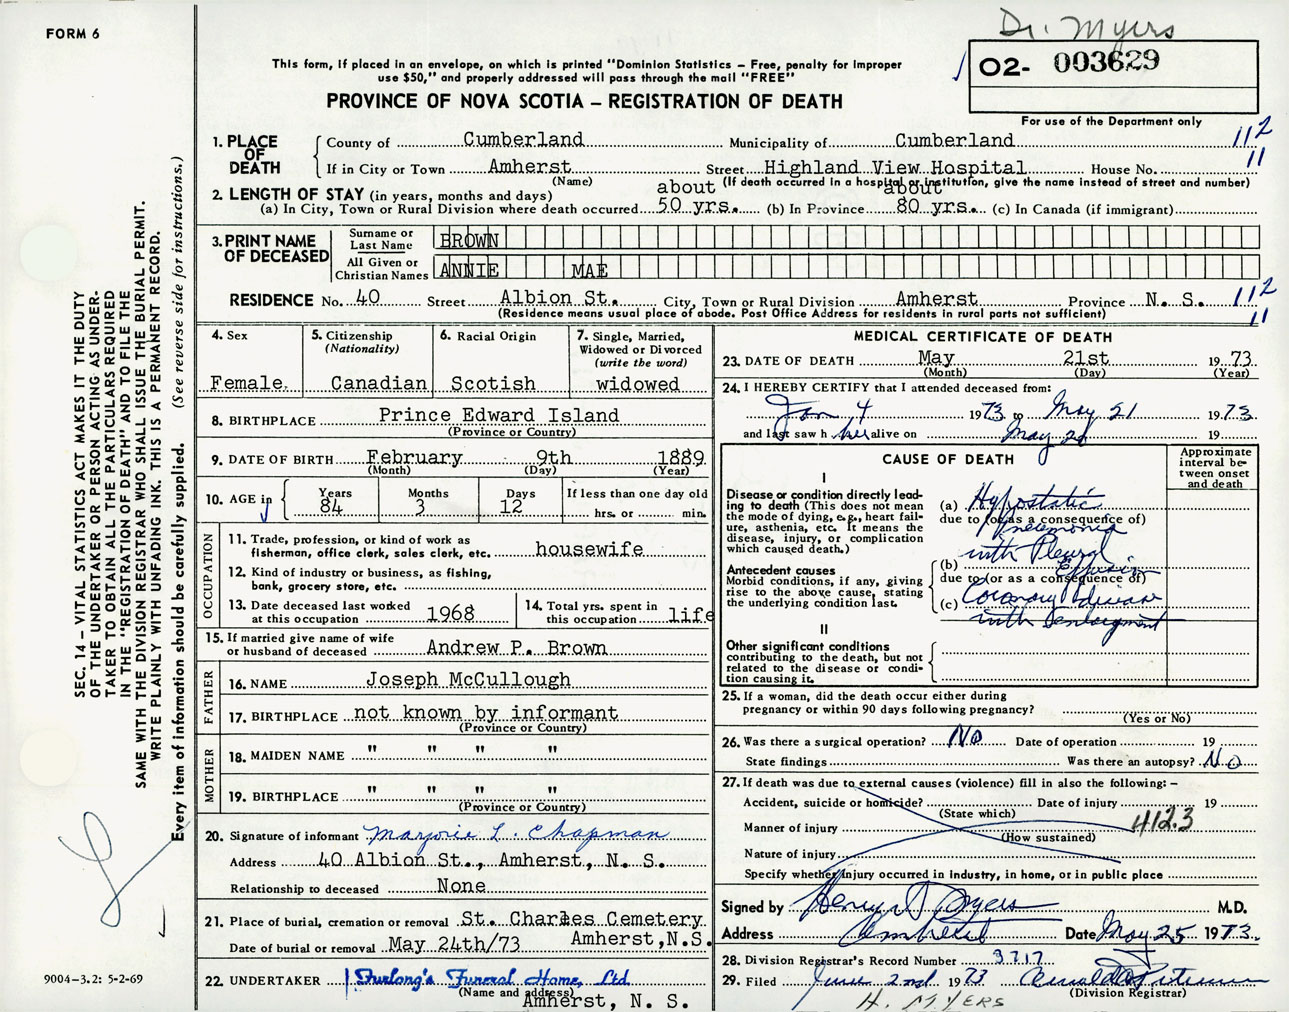 FORM 6
Dr. Myers
This form, if placed in an envelope, on which is printed "Dominion Statistics – Free, penalty for improper
use $50," and properly addressed will pass through the mail "FREE"
O2- 003629
PROVINCE OF NOVA SCOTIA – REGISTRATION OF DEATH
For use of the Department only
1. PLACE OF DEATH
County of Cumberland Municipality of Cumberland 11 2
If in City or Town Amherst Street Highland View Hospital House No. 11
(Name) (If death occurred in a hospital or institution, give the name instead of street and number)
2. LENGTH OF STAY (in years, months and days)
(a) In City, Town or Rural Division where death occurred about 50 yrs. (b) In Province about 80 yrs. (c) In Canada (if immigrant)
3. PRINT NAME OF DECEASED
Surname or Last Name BROWN
All Given or Christian Names ANNIE MAE
RESIDENCE No. 40 Street Albion St. City, Town or Rural Division Amherst Province N. S. 11 2
(Residence means usual place of abode. Post Office Address for residents in rural parts not sufficient) 11
4. Sex
Female
5. Citizenship
(Nationality)
Canadian
6. Racial Origin
Scotish
7. Single, Married,
Widowed or Divorced
(write the word)
widowed
8. BIRTHPLACE Prince Edward Island
(Province or Country)
9. DATE OF BIRTH February 9th 1889
(Month) (Day) (Year)
10. AGE in
Years Months Days If less than one day old
84 3 12 hrs. or min.
OCCUPATION
11. Trade, profession, or kind of work as
fisherman, office clerk, sales clerk, etc. housewife
12. Kind of industry or business, as fishing,
bank, grocery store, etc.
13. Date deceased last worked
at this occupation 1968
14. Total yrs. spent in
this occupation life
15. If married give name of wife
or husband of deceased Andrew P. Brown
FATHER
16. NAME Joseph McCullough
17. BIRTHPLACE not known by informant
(Province or Country)
MOTHER
18. MAIDEN NAME " " " "
19. BIRTHPLACE " " " "
(Province or Country)
20. Signature of informant Marjorie L. Chapman
Address 40 Albion St., Amherst, N. S.
Relationship to deceased None
21. Place of burial, cremation or removal St. Charles Cemetery
Date of burial or removal May 24th/73 Amherst,N.S.
22. UNDERTAKER Furlong's Funeral Home, Ltd.
(Name and address)
Amherst, N. S.
MEDICAL CERTIFICATE OF DEATH
23. DATE OF DEATH May 21st 1973
(Month) (Day) (Year)
24. I HEREBY CERTIFY that I attended deceased from:
Jan 4 1973 to May 21 1973
and last saw h her alive on May 20 19
CAUSE OF DEATH
Approximate
interval be-
tween onset
and death
I
Disease or condition directly lead-
ing to death (This does not mean
the mode of dying, e.g., heart fail-
ure, asthenia, etc. It means the
disease, injury, or complication
which caused death.)
(a) Hypostatic
due to (or as a consequence of)
pneumonia
with Pleural
Antecedent causes
Morbid conditions, if any, giving
rise to the above cause, stating
the underlying condition last.
(b) Effusion
due to (or as a consequence of)
(c) Coronary disease
with enlargment
II
Other significant conditions
contributing to the death, but not
related to the disease or condi-
tion causing it.
25. If a woman, did the death occur either during
pregnancy or within 90 days following pregnancy?
(Yes or No)
26. Was there a surgical operation? No Date of operation 19
State findings Was there an autopsy? No
27. If death was due to external causes (violence) fill in also the following: –
Accident, suicide or homicide? Date of injury 19
(State which)
Manner of injury 412.3
(How sustained)
Nature of injury
Specify whether injury occurred in industry, in home, or in public place
Signed by Henry Myers M.D.
Address Amherst Date May 25 1973.
28. Division Registrar's Record Number 3717
29. Filed June 2nd 1973
(Division Registrar)
H. MYERS
SEC. 14 – VITAL STATISTICS ACT MAKES IT THE DUTY
OF THE UNDERTAKER OR PERSON ACTING AS UNDER-
TAKER TO OBTAIN ALL THE PARTICULARS REQUIRED
IN THE "REGISTRATION OF DEATH" AND TO FILE THE
SAME WITH THE DIVISION REGISTRAR WHO SHALL ISSUE THE BURIAL PERMIT.
WRITE PLAINLY WITH UNFADING INK. THIS IS A PERMANENT RECORD.
Every item of information should be carefully supplied. (See reverse side for instructions.)
9004–3.2: 5-2-69